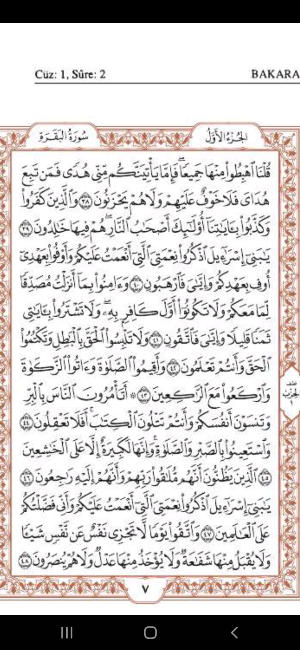 Cüz: 1, Sûre: 2 BAKARA
سُورَةُ الْبَقَرَةِ الْجُزْءُ الْأَوَّلُ
قُلْنَا اهْبِطُوا مِنْهَا جَمِيعًا فَإِمَّا يَأْتِيَنَّكُمْ مِنِّي هُدًى فَمَنْ تَبِعَ
هُدَايَ فَلَا خَوْفٌ عَلَيْهِمْ وَلَا هُمْ يَحْزَنُونَ ٣٨ وَالَّذِينَ كَفَرُوا
وَكَذَّبُوا بِآيَاتِنَا أُولَٰئِكَ أَصْحَابُ النَّارِ هُمْ فِيهَا خَالِدُونَ ٣٩
يَا بَنِي إِسْرَائِيلَ اذْكُرُوا نِعْمَتِيَ الَّتِي أَنْعَمْتُ عَلَيْكُمْ وَأَوْفُوا بِعَهْدِي
أُوفِ بِعَهْدِكُمْ وَإِيَّايَ فَارْهَبُونِ ٤٠ وَآمِنُوا بِمَا أَنْزَلْتُ مُصَدِّقًا
لِمَا مَعَكُمْ وَلَا تَكُونُوا أَوَّلَ كَافِرٍ بِهِ وَلَا تَشْتَرُوا بِآيَاتِي
ثَمَنًا قَلِيلًا وَإِيَّايَ فَاتَّقُونِ ٤١ وَلَا تَلْبِسُوا الْحَقَّ بِالْبَاطِلِ وَتَكْتُمُوا
الْحَقَّ وَأَنْتُمْ تَعْلَمُونَ ٤٢ وَأَقِيمُوا الصَّلَاةَ وَآتُوا الزَّكَاةَ
وَارْكَعُوا مَعَ الرَّاكِعِينَ ٤٣ أَتَأْمُرُونَ النَّاسَ بِالْبِرِّ
وَتَنْسَوْنَ أَنْفُسَكُمْ وَأَنْتُمْ تَتْلُونَ الْكِتَابَ أَفَلَا تَعْقِلُونَ ٤٤
وَاسْتَعِينُوا بِالصَّبْرِ وَالصَّلَاةِ وَإِنَّهَا لَكَبِيرَةٌ إِلَّا عَلَى الْخَاشِعِينَ
٤٥ الَّذِينَ يَظُنُّونَ أَنَّهُمْ مُلَاقُوا رَبِّهِمْ وَأَنَّهُمْ إِلَيْهِ رَاجِعُونَ ٤٦
يَا بَنِي إِسْرَائِيلَ اذْكُرُوا نِعْمَتِيَ الَّتِي أَنْعَمْتُ عَلَيْكُمْ وَأَنِّي فَضَّلْتُكُمْ
عَلَى الْعَالَمِينَ ٤٧ وَاتَّقُوا يَوْمًا لَا تَجْزِي نَفْسٌ عَنْ نَفْسٍ شَيْئًا
وَلَا يُقْبَلُ مِنْهَا شَفَاعَةٌ وَلَا يُؤْخَذُ مِنْهَا عَدْلٌ وَلَا هُمْ يُنْصَرُونَ ٤٨
٧